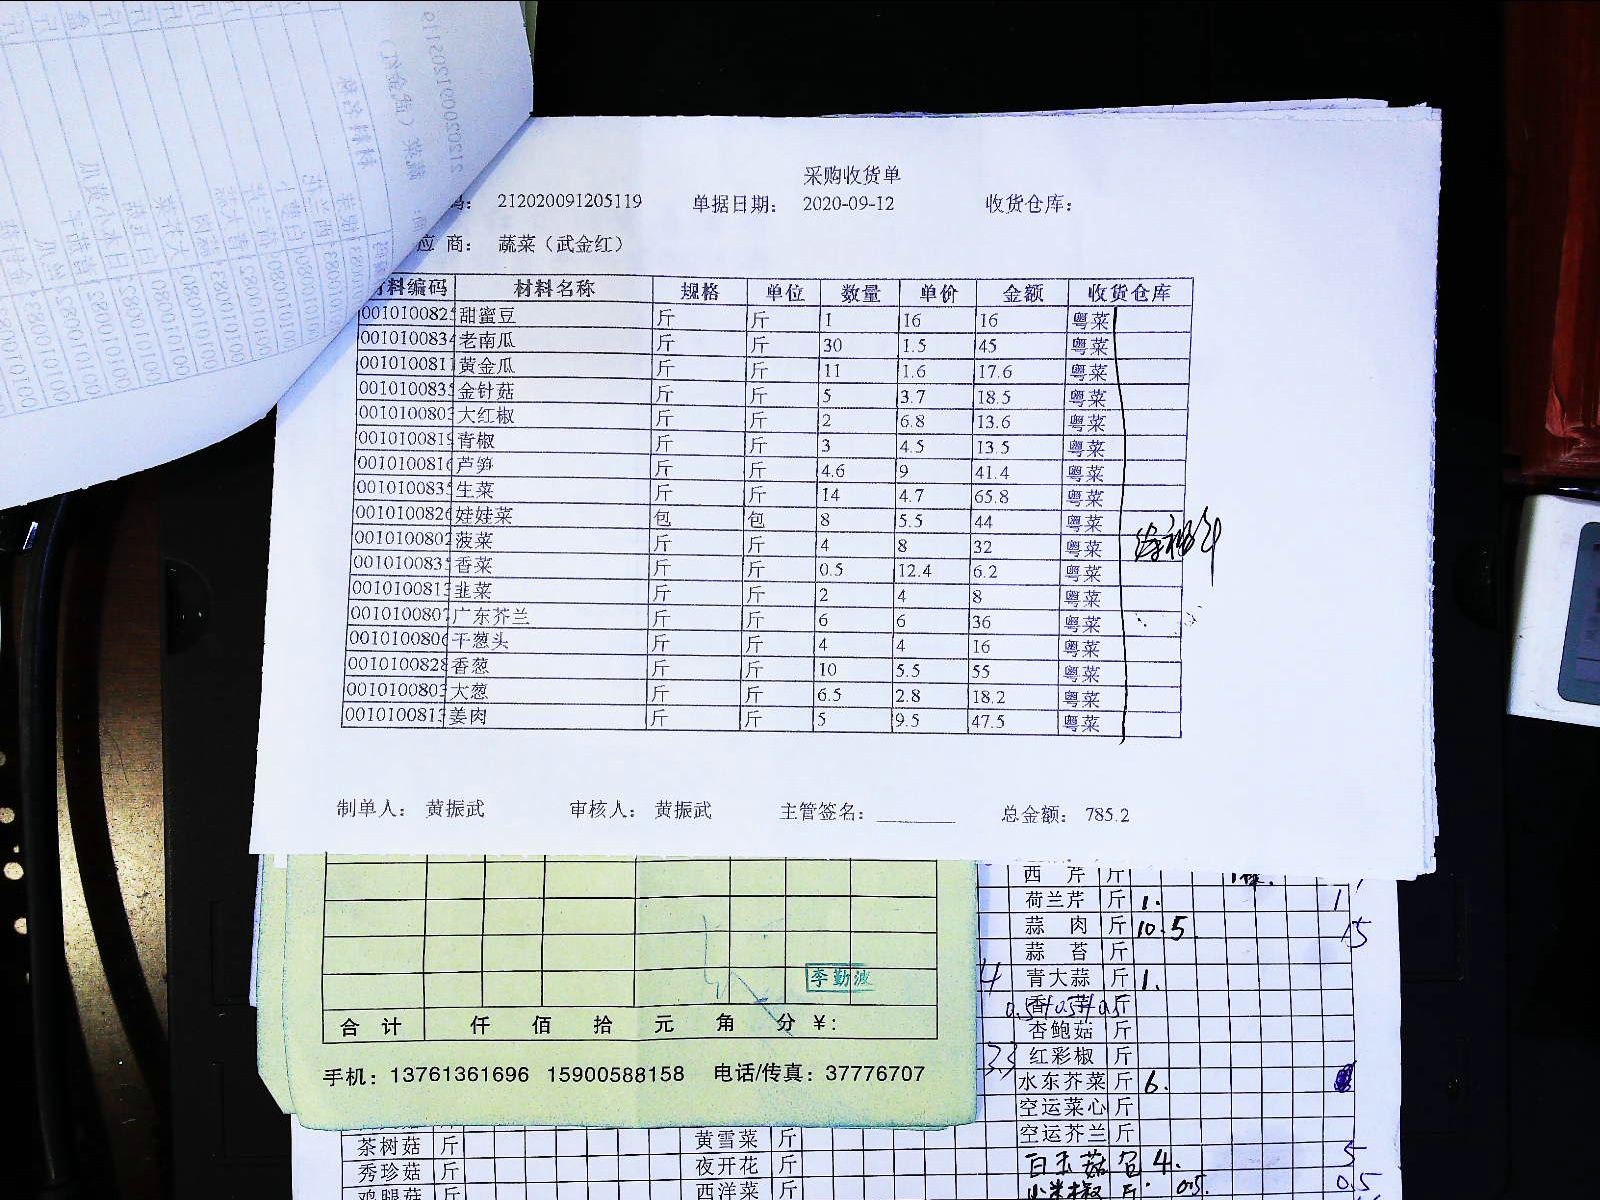 采购收货单
212020091205119 单据日期: 2020-09-12 收货仓库:
应 商: 蔬菜（武金红）
材料编码 材料名称 规格 单位 数量 单价 金额 收货仓库
0010100825 甜蜜豆 斤 斤 1 16 16 粤菜
0010100834 老南瓜 斤 斤 30 1.5 45 粤菜
0010100811 黄金瓜 斤 斤 11 1.6 17.6 粤菜
0010100835 金针菇 斤 斤 5 3.7 18.5 粤菜
0010100803 大红椒 斤 斤 2 6.8 13.6 粤菜
0010100819 青椒 斤 斤 3 4.5 13.5 粤菜
0010100816 芦笋 斤 斤 4.6 9 41.4 粤菜
0010100835 生菜 斤 斤 14 4.7 65.8 粤菜
0010100826 娃娃菜 包 包 8 5.5 44 粤菜
0010100802 菠菜 斤 斤 4 8 32 粤菜
0010100835 香菜 斤 斤 0.5 12.4 6.2 粤菜
0010100813 韭菜 斤 斤 2 4 8 粤菜
0010100807 广东芥兰 斤 斤 6 6 36 粤菜
0010100806 干葱头 斤 斤 4 4 16 粤菜
0010100828 香葱 斤 斤 10 5.5 55 粤菜
0010100803 大葱 斤 斤 6.5 2.8 18.2 粤菜
0010100813 姜肉 斤 斤 5 9.5 47.5 粤菜
制单人: 黄振武 审核人: 黄振武 主管签名: 总金额: 785.2
西 芹 斤
荷兰芹 斤 1. 1
蒜 肉 斤 10.5 15
蒜 苔 斤
青大蒜 斤 1.
李勤波
杏鲍菇 斤
合 计 仟 佰 拾 元 角 分 ¥:
红彩椒 斤
手机: 13761361696 15900588158 电话/传真: 37776707
水东芥菜 斤 6.
空运菜心 斤
空运芥兰 斤
茶树菇 斤 黄雪菜 斤
白玉菇 包 4. 5
秀珍菇 斤 夜开花 斤
鸡腿菇 斤 西洋菜 斤
小米椒 斤 0.5. 0.5